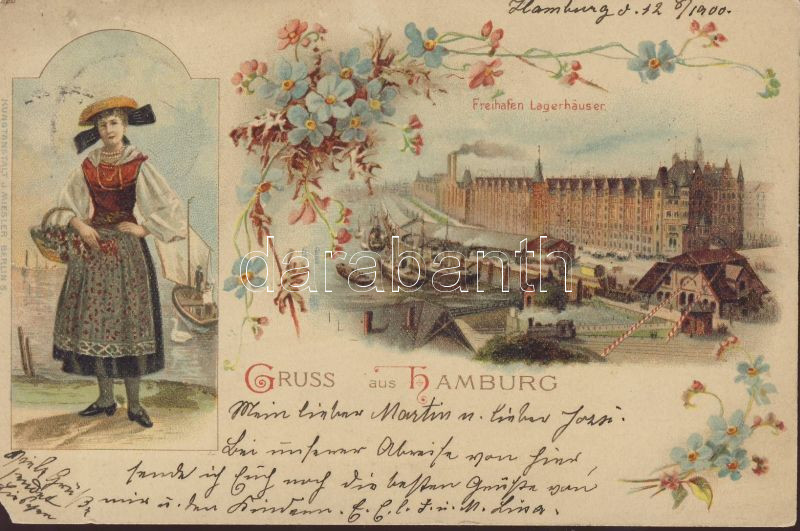 Hamburg d. 12 8/1900.
Freihafen Lagerhäuser.
KUNSTANSTALT J. MIESLER, BERLIN S.
darabanth
GRUSS aus HAMBURG
Mein lieber Martin u. lieber Jozsi.
Bei unserer Abreise von hier
sende ich Euch noch die besten Grüße von
mir u. den Kindern. E. E. l. T. u. M. Lina.
Viele
sendet